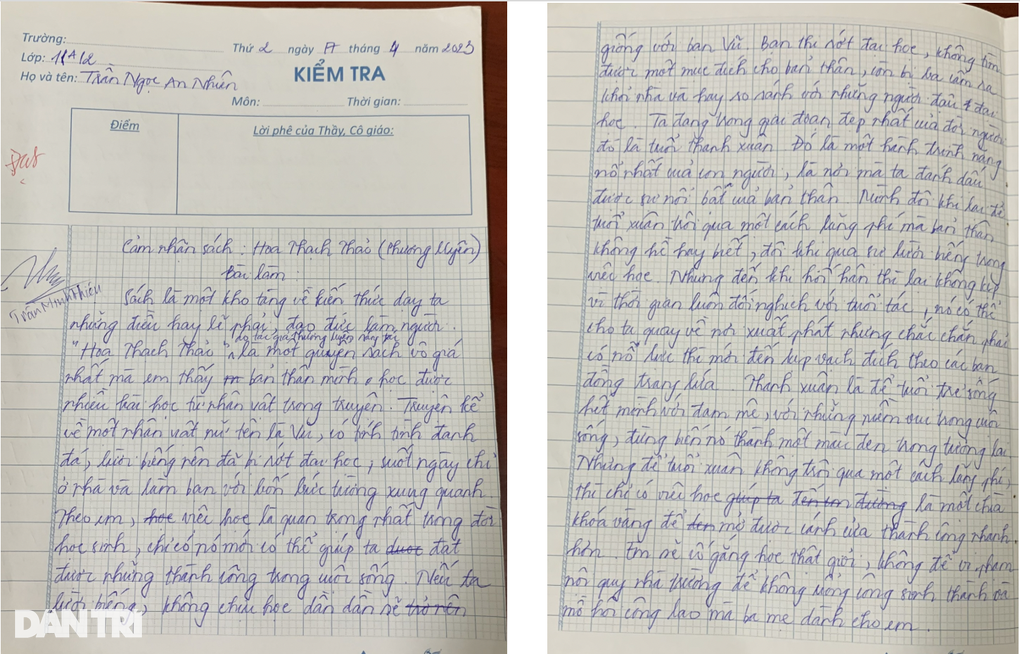 Trường:
Thứ 2 ngày 17 tháng 4 năm 2023
Lớp: 11A12
Họ và tên: Trần Ngọc An Nhiên
KIỂM TRA
Môn: Thời gian:
Điểm
Lời phê của Thầy, Cô giáo:
Đạt
Cảm nhận sách: Hoa Thạch Thảo (Phương Uyên)
Bài làm:
Trần Minh Hiếu
Sách là một kho tàng về kiến thức dạy ta
những điều hay lẽ phải, đạo đức làm người.
do tác giả Phương Uyên này tác
"Hoa Thạch Thảo" là một quyển sách vô giá
nhất mà em thấy bản thân mình học được
nhiều bài học từ nhân vật trong truyện. Truyện kể
về một nhân vật nữ tên là Vũ, có tính tình đanh
đá, lười biếng nên đã bị rớt đại học, suốt ngày chỉ
ở nhà và làm bạn với bốn bức tường xung quanh.
Theo em, học việc học là quan trọng nhất trong đời
học sinh, chỉ có nó mới có thể giúp ta được đạt
được những thành công trong cuộc sống. Nếu ta
lười biếng, không chịu học dần dần sẽ trở nên
DÂN TRÍ
giống với bạn Vũ. Bạn thi rớt đại học, không tìm
được một mục đích cho bản thân, còn bị ba cấm ra
khỏi nhà và hay so sánh với những người đậu đại
học. Ta đang trong giai đoạn đẹp nhất của đời người
đó là tuổi thanh xuân. Đó là một hành trình năng
nổ nhất của con người, là nơi mà ta đánh dấu
được sự nổi bật của bản thân. Mình đôi khi lại để
tuổi xuân trôi qua một cách lãng phí mà bản thân
không hề hay biết, đôi khi qua sự lười biếng trong
việc học. Nhưng đến khi hối hận thì lại không kịp
vì thời gian luôn đối nghịch với tuổi tác, nó có thể
cho ta quay về nơi xuất phát nhưng chắc chắn phải
có nỗ lực thì mới đến kịp vạch đích theo các bạn
đồng trang lứa. Thanh xuân là để tuổi trẻ sống
hết mình với đam mê, với những niềm vui trong cuộc
sống, đừng biến nó thành một màu đen trong tương lai.
Nhưng để tuổi xuân không trôi qua một cách lãng phí,
thì chỉ có việc học giúp ta là một chìa
khóa vàng để đến mở được cánh cửa thành công nhanh
hơn. Em sẽ cố gắng học thật giỏi, không để vi phạm
nội quy nhà trường để không uổng công sinh thành và
mồ hôi công lao mà ba mẹ dành cho em.